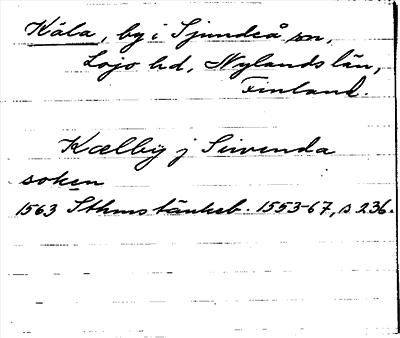 Kåla, by i Sjundeå sn,
Lojo hd, Nylands län,
Finland.
Kælby j Siwenda
soken
1563 Sthms tänkeb. 1553-67, s 236.